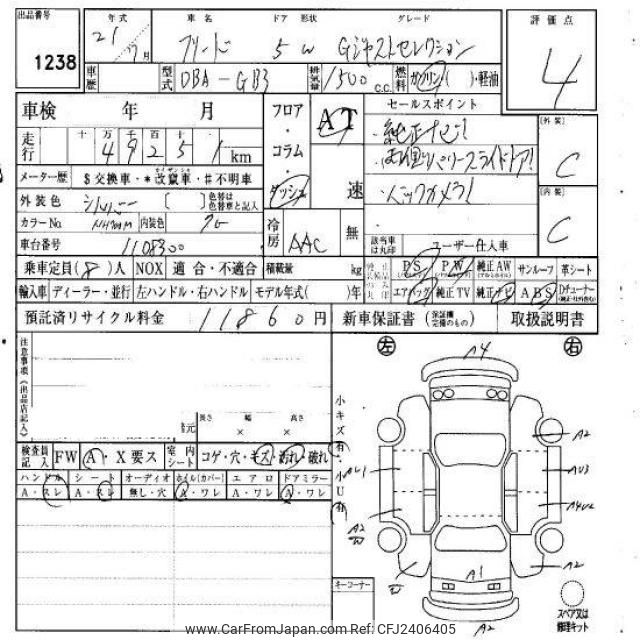 出品番号
1238
年式 車名 ドア 形状 グレード
21 7月 フリード 5 W Gジャストセレクション
車歴 型式 DBA-GB3 排気量 1500 c.c. 燃料 ガソリン・( )・軽油
評価点
4
車検 年 月
走行 十 万 千 百 十
4 9 2 5 1 km
メーター歴 $交換車・*改竄車・#不明車
外装色 シルバー [ ] 色替は色替車と記入
カラーNo. NH700M 内装色 グレー
車台番号 1108300
フロア・コラム・ダッシュ
AT
速
冷房 AAC 無
セールスポイント
・純正ナビ!
・両側パワースライドドア!
・バックカメラ!
該当車は丸印 ユーザー仕入車
[外装]
C
[内装]
C
乗車定員(8)人 NOX 適合・不適合 積載量 kg
PS PW 純正AW サンルーフ 革シート
輸入車 ディーラー・並行 左ハンドル・右ハンドル モデル年式( )年
エアバッグ 純正TV 純正ナビ ABS Dチューナー
預託済リサイクル料金 11860円 新車保証書 (保証欄完備のもの) 取扱説明書
注意事項(出品店記入)
諸元 長さ × 幅 × 高さ
検査員記入 FW A・X要ス 室内シート コゲ・穴・キズ・汚れ・破れ
ハンドル シート オーディオ ホイル(カバー) エアロ ドアミラー
A・スレ A・スレ 無し・穴 A・ワレ A・ワレ A・ワレ
小キズ有
小U有
左 右
A4
A2
AU1 AU3
A4U2
A2
W
A2
A1
A2
キーコーナー
スペア又は修理キット
www.CarFromJapan.com Ref: CFJ2406405